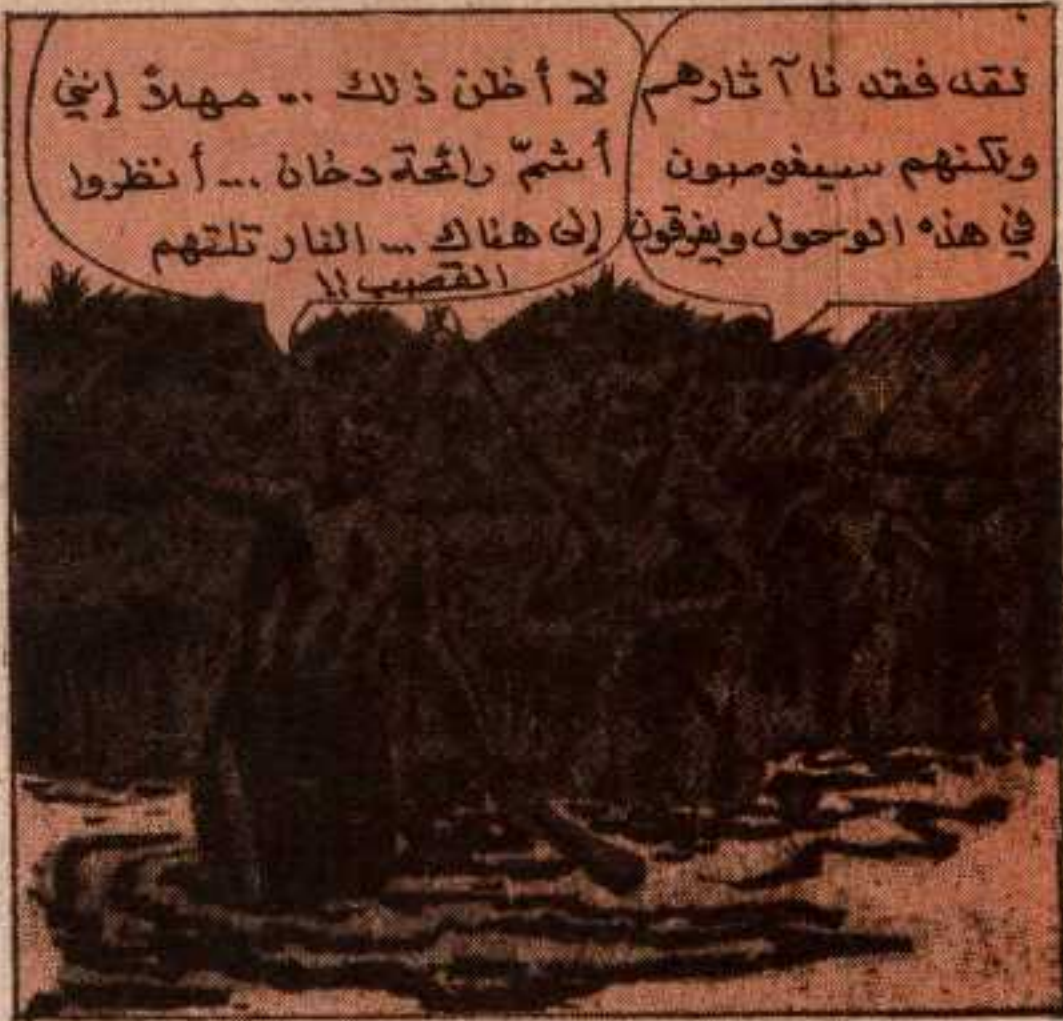 لقد فقدنا آثارهم
ولكنهم سيغوصون
في هذه الوحول ويغرقون
لا أظن ذلك ... مهلاً إنني
أشمّ رائحة دخان ... أنظروا
إلى هناك ... النار تلتهم
القصب !!